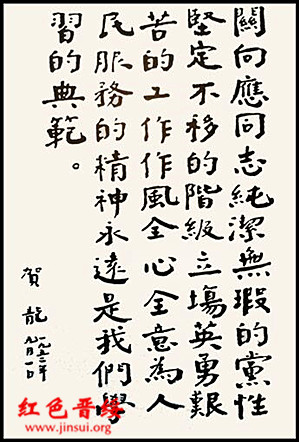 關向應同志純潔無瑕的黨性
堅定不移的階級立塲英勇艱
苦的工作作風全心全意為人
民服務的精神永遠是我們學
習的典範。
賀龍
红色晋绥
www.jinsui.org